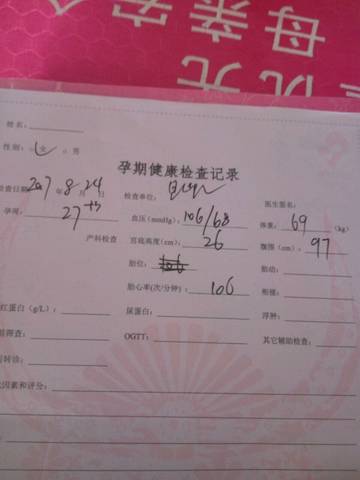 母亲安全
优先
姓名：
性别：女 男
孕期健康检查记录
检查日期 2017 年 8 月 24 日 检查单位： 医生签名：
孕周： 27 血压(mmHg)： 106/68 体重： 69 (kg)
产科检查 宫底高度(cm)： 26 腹围(cm)： 97
胎位： 胎动：
胎心率(次/分钟)： 106 衔接：
红蛋白 (g/L)： 尿蛋白： 浮肿：
筛查： OGTT： 其它辅助检查：
转诊：
因素和评分：